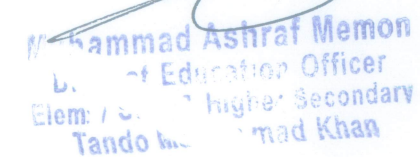 Muhammad Ashraf Memon
Education Officer
Elem: / Higher Secondary
Tando Khan